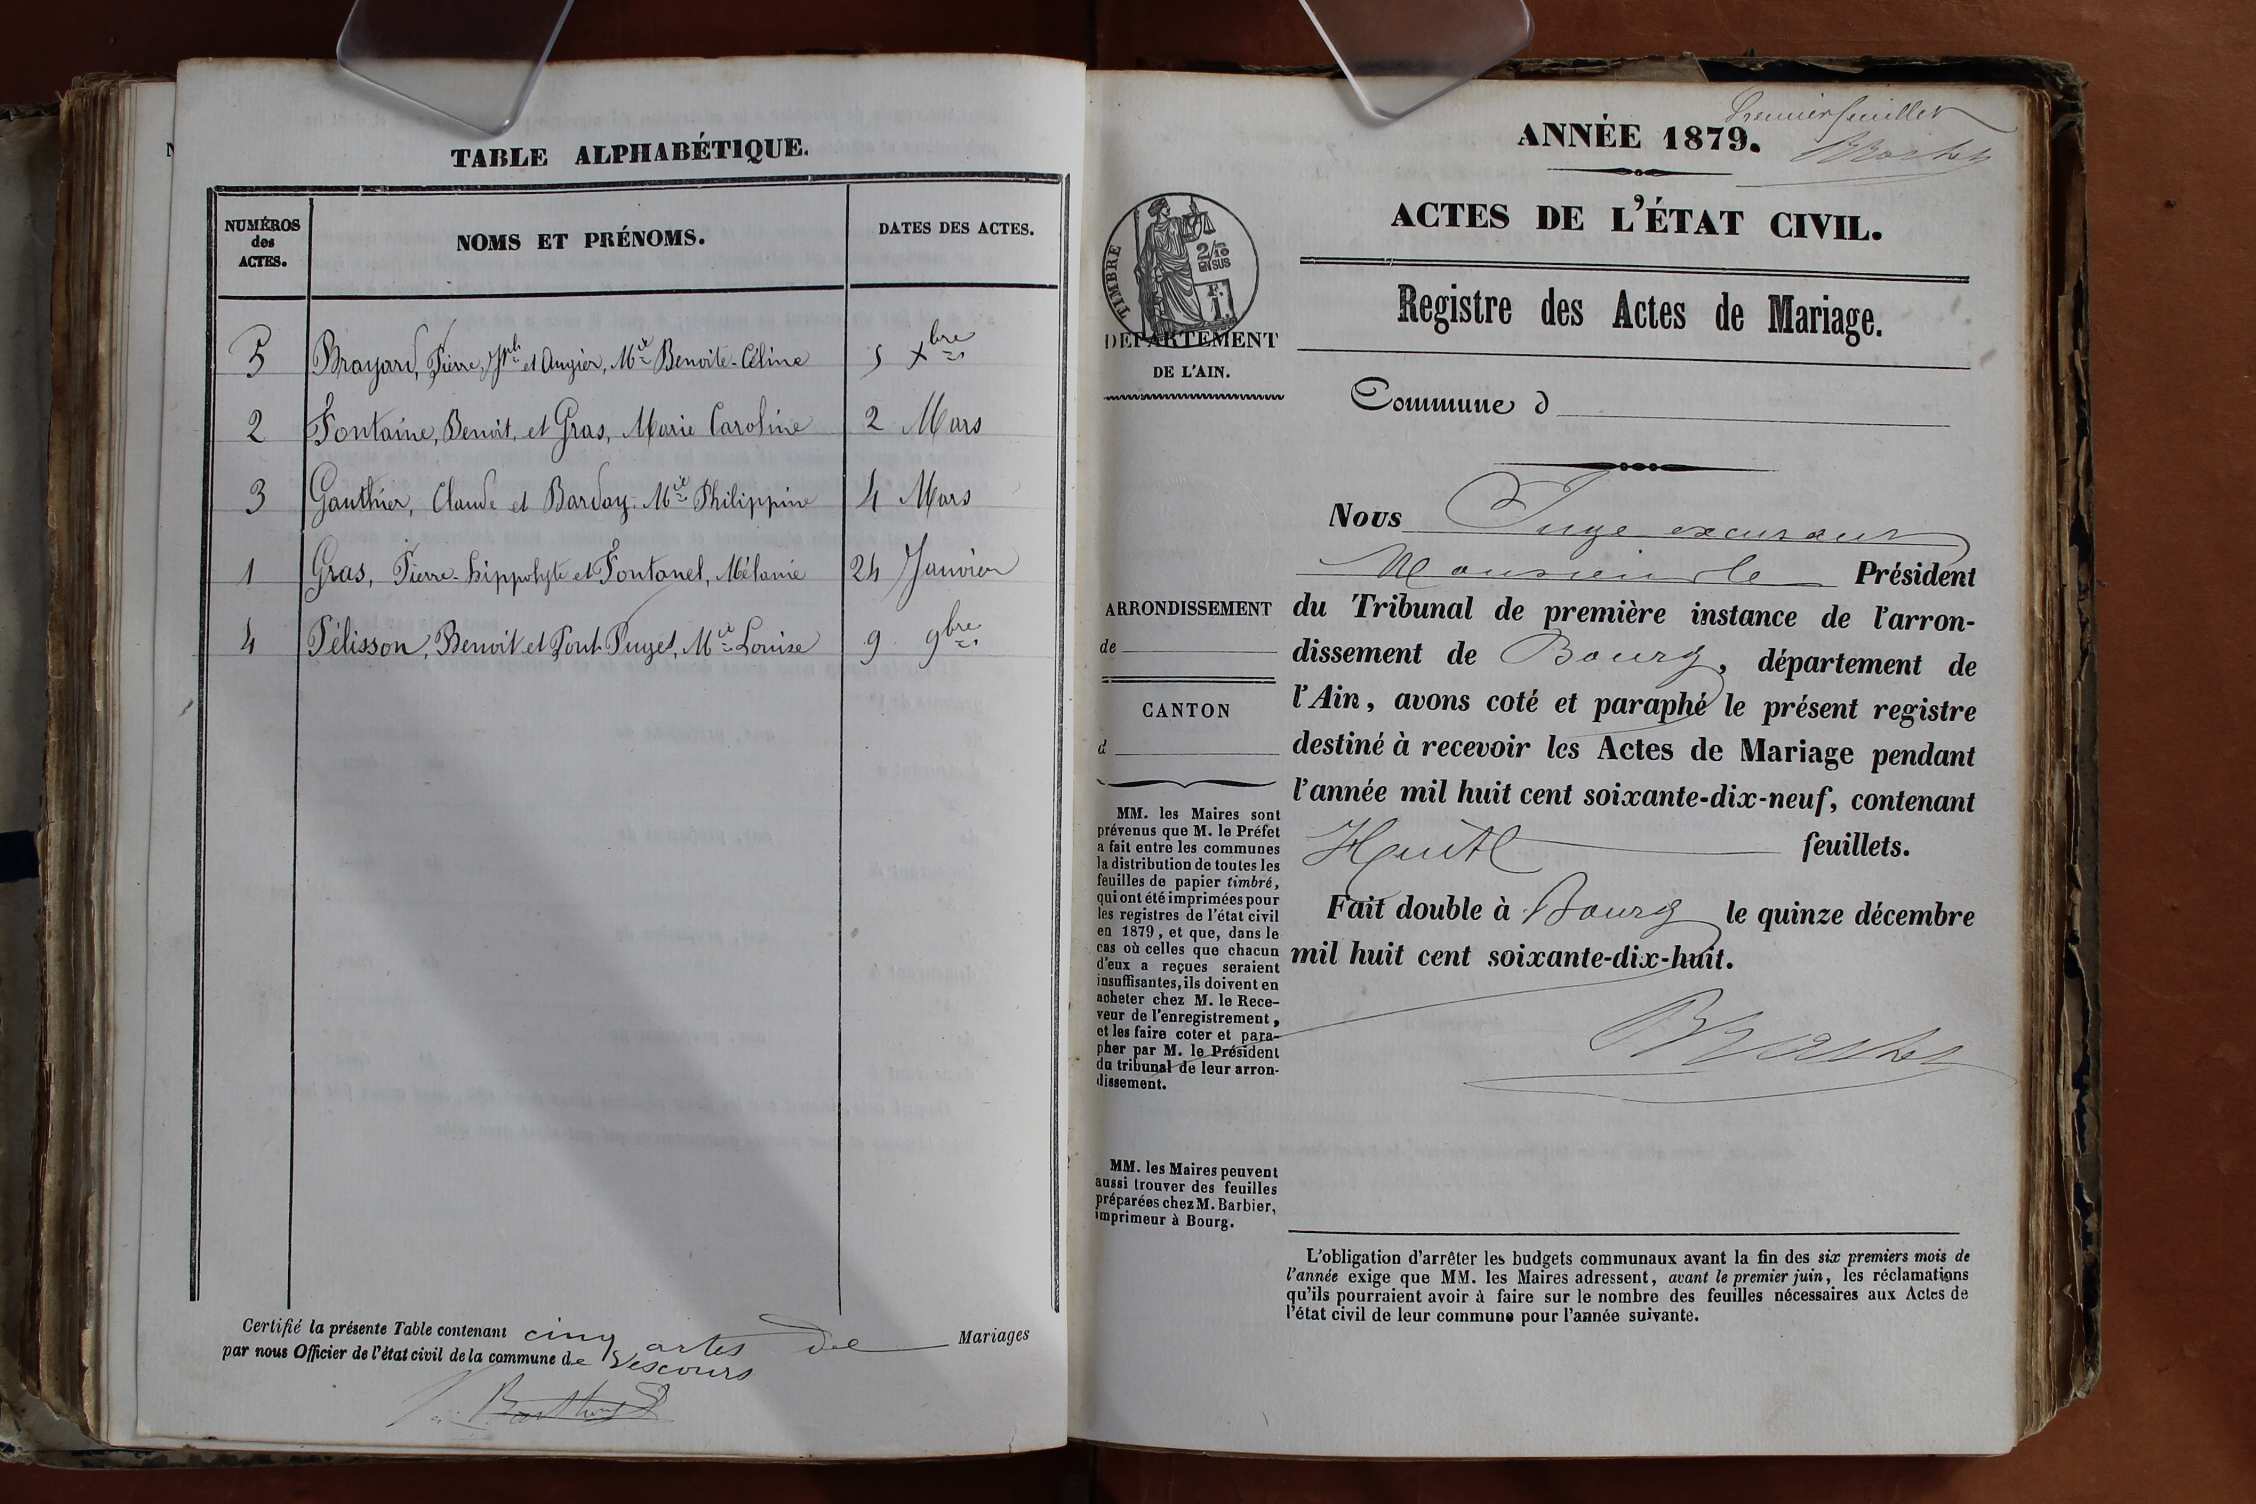 TABLE ALPHABÉTIQUE.
NUMÉROS
des
ACTES.
NOMS ET PRÉNOMS.
DATES DES ACTES.
5 Brayard, Pierre, Hpli et Augier, Mie Benoite-Céline 5 Xbre
2 Fontaine, Benoit, et Gras, Marie Caroline 2 Mars
3 Gauthier, Claude et Barday, Mie Philippine 4 Mars
1 Gras, Pierre-hippolyte et Fontanel, Mélanie 24 Janvier
4 Pélisson, Benoit et Pont Puget, Mie Louise 9 9bre
Certifié la présente Table contenant cinq actes de Mariages
par nous Officier de l'état civil de la commune de Vescours
Premier feuillet
ANNÉE 1879.
ACTES DE L'ÉTAT CIVIL.
Registre des Actes de Mariage.
TIMBRE
2/10
EN SUS
F.
1.
DÉPARTEMENT
DE L'AIN.
Commune d
Nous Juge excusant
Monsieur le Président
du Tribunal de première instance de l'arron-
dissement de Bourg, département de
l'Ain, avons coté et paraphé le présent registre
destiné à recevoir les Actes de Mariage pendant
l'année mil huit cent soixante-dix-neuf, contenant
Huit feuillets.
Fait double à Bourg le quinze décembre
mil huit cent soixante-dix-huit.
ARRONDISSEMENT
de
CANTON
d
MM. les Maires sont
prévenus que M. le Préfet
a fait entre les communes
la distribution de toutes les
feuilles de papier timbré,
qui ont été imprimées pour
les registres de l'état civil
en 1879, et que, dans le
cas où celles que chacun
d'eux a reçues seraient
insuffisantes, ils doivent en
acheter chez M. le Rece-
veur de l'enregistrement,
et les faire coter et para-
pher par M. le Président
du tribunal de leur arron-
dissement.
MM. les Maires peuvent
aussi trouver des feuilles
préparées chez M. Barbier,
imprimeur à Bourg.
L'obligation d'arrêter les budgets communaux avant la fin des six premiers mois de
l'année exige que MM. les Maires adressent, avant le premier juin, les réclamations
qu'ils pourraient avoir à faire sur le nombre des feuilles nécessaires aux Actes de
l'état civil de leur commune pour l'année suivante.